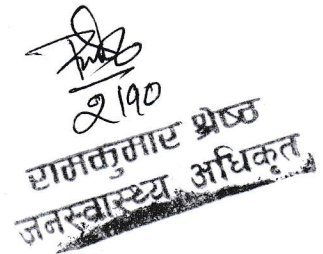 २/१०
रामकुमार श्रेष्ठ
जनस्वास्थ्य अधिकृत